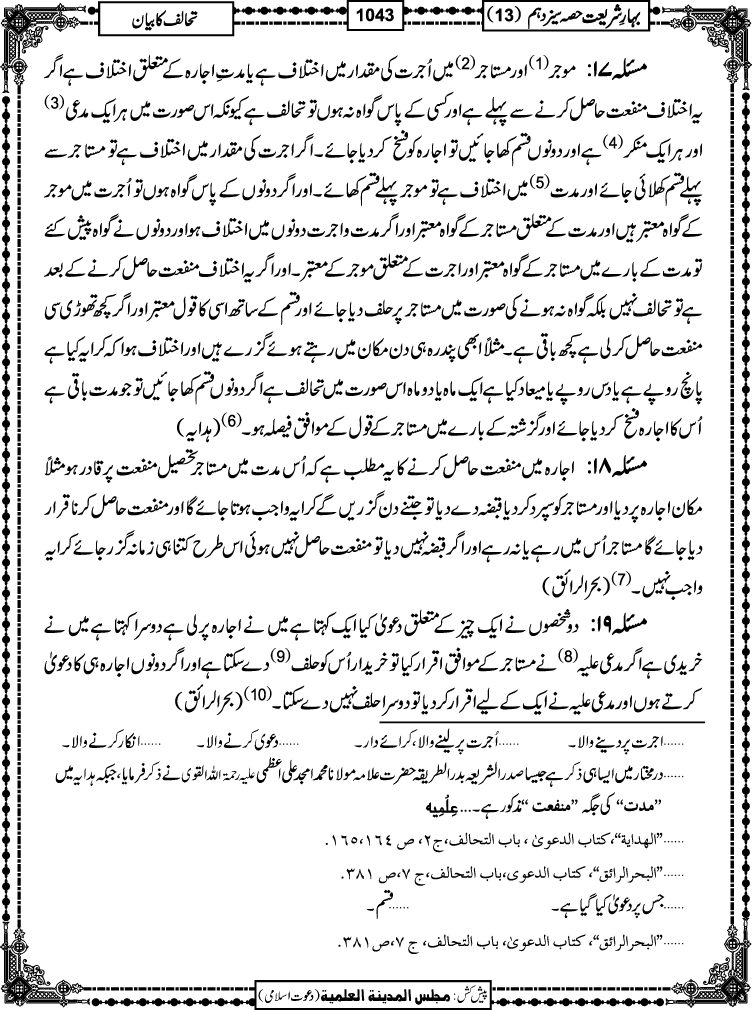 بہارِ شریعت حصہ سیزدہم (13)
1043
تحالف کا بیان
مسئلہ ۱۷: موجر(1) اور مستاجر(2) میں اُجرت کی مقدار میں اختلاف ہے یا مدتِ اجارہ کے متعلق اختلاف ہے اگر
یہ اختلاف منفعت حاصل کرنے سے پہلے ہے اور کسی کے پاس گواہ نہ ہوں تو تحالف ہے کیونکہ اس صورت میں ہر ایک مدعی(3)
اور ہر ایک منکر(4) ہے اور دونوں قسم کھا جائیں تو اجارہ کو فسخ کر دیا جائے۔ اگر اجرت کی مقدار میں اختلاف ہے تو مستاجر سے
پہلے قسم کھلائی جائے اور مدت(5) میں اختلاف ہے تو موجر پہلے قسم کھائے۔ اور اگر دونوں کے پاس گواہ ہوں تو اُجرت میں موجر
کے گواہ معتبر ہیں اور مدت کے متعلق مستاجر کے گواہ معتبر اور اگر مدت و اجرت دونوں میں اختلاف ہو اور دونوں نے گواہ پیش کئے
تو مدت کے بارے میں مستاجر کے گواہ معتبر اور اجرت کے متعلق موجر کے معتبر۔ اور اگر یہ اختلاف منفعت حاصل کرنے کے بعد
ہے تو تحالف نہیں بلکہ گواہ نہ ہونے کی صورت میں مستاجر پر حلف دیا جائے اور قسم کے ساتھ اسی کا قول معتبر اور اگر کچھ تھوڑی سی
منفعت حاصل کر لی ہے کچھ باقی ہے۔ مثلاً ابھی پندرہ ہی دن مکان میں رہتے ہوئے گزرے ہیں اور اختلاف ہوا کہ کرایہ کیا ہے
پانچ روپے ہے یا دس روپے یا میعاد کیا ہے ایک ماہ یا دو ماہ اس صورت میں تحالف ہے اگر دونوں قسم کھا جائیں تو جو مدت باقی ہے
اُس کا اجارہ فسخ کر دیا جائے اور گزشتہ کے بارے میں مستاجر کے قول کے موافق فیصلہ ہو۔(6) (ہدایہ)
مسئلہ ۱۸: اجارہ میں منفعت حاصل کرنے کا یہ مطلب ہے کہ اُس مدت میں مستاجر تحصیل منفعت پر قادر ہو مثلاً
مکان اجارہ پر دیا اور مستاجر کو سپرد کر دیا قبضہ دے دیا تو جتنے دن گزریں گے کرایہ واجب ہوتا جائے گا اور منفعت حاصل کرنا قرار
دیا جائے گا مستاجر اُس میں رہے یا نہ رہے اور اگر قبضہ نہیں دیا تو منفعت حاصل نہیں ہوئی اس طرح کتنا ہی زمانہ گزر جائے کرایہ
واجب نہیں۔(7) (بحرالرائق)
مسئلہ ۱۹: دو شخصوں نے ایک چیز کے متعلق دعویٰ کیا ایک کہتا ہے میں نے اجارہ پر لی ہے دوسرا کہتا ہے میں نے
خریدی ہے اگر مدعی علیہ(8) نے مستاجر کے موافق اقرار کیا تو خریدار اُس کو حلف(9) دے سکتا ہے اور اگر دونوں اجارہ ہی کا دعویٰ
کرتے ہوں اور مدعی علیہ نے ایک کے لیے اقرار کر دیا تو دوسرا حلف نہیں دے سکتا۔(10) (بحرالرائق)
......اجرت پر دینے والا۔ ......اُجرت پر لینے والا، کرائے دار۔ ......دعوی کرنے والا۔ ......انکار کرنے والا۔
......درمختار میں ایسا ہی ذکر ہے جیسا صدر الشریعہ بدر الطریقہ حضرت علامہ مولانا محمد امجد علی اعظمی علیہ رحمۃ اللہ القوی نے ذکر فرمایا، جبکہ ہدایہ میں
”مدت“ کی جگہ ”منفعت“ مذکور ہے۔... عِلْمِیہ
......”الهداية“، كتاب الدعوىٰ، باب التحالف، ج٢، ص ١٦٥،١٦٤.
......”البحرالرائق“، كتاب الدعوى، باب التحالف، ج ٧، ص ٣٨١.
......جس پر دعویٰ کیا گیا ہے۔ ......قسم۔
......”البحرالرائق“، كتاب الدعوىٰ، باب التحالف، ج ٧، ص ٣٨١.
پیش کش: مجلس المدينة العلمية (دعوت اسلامی)